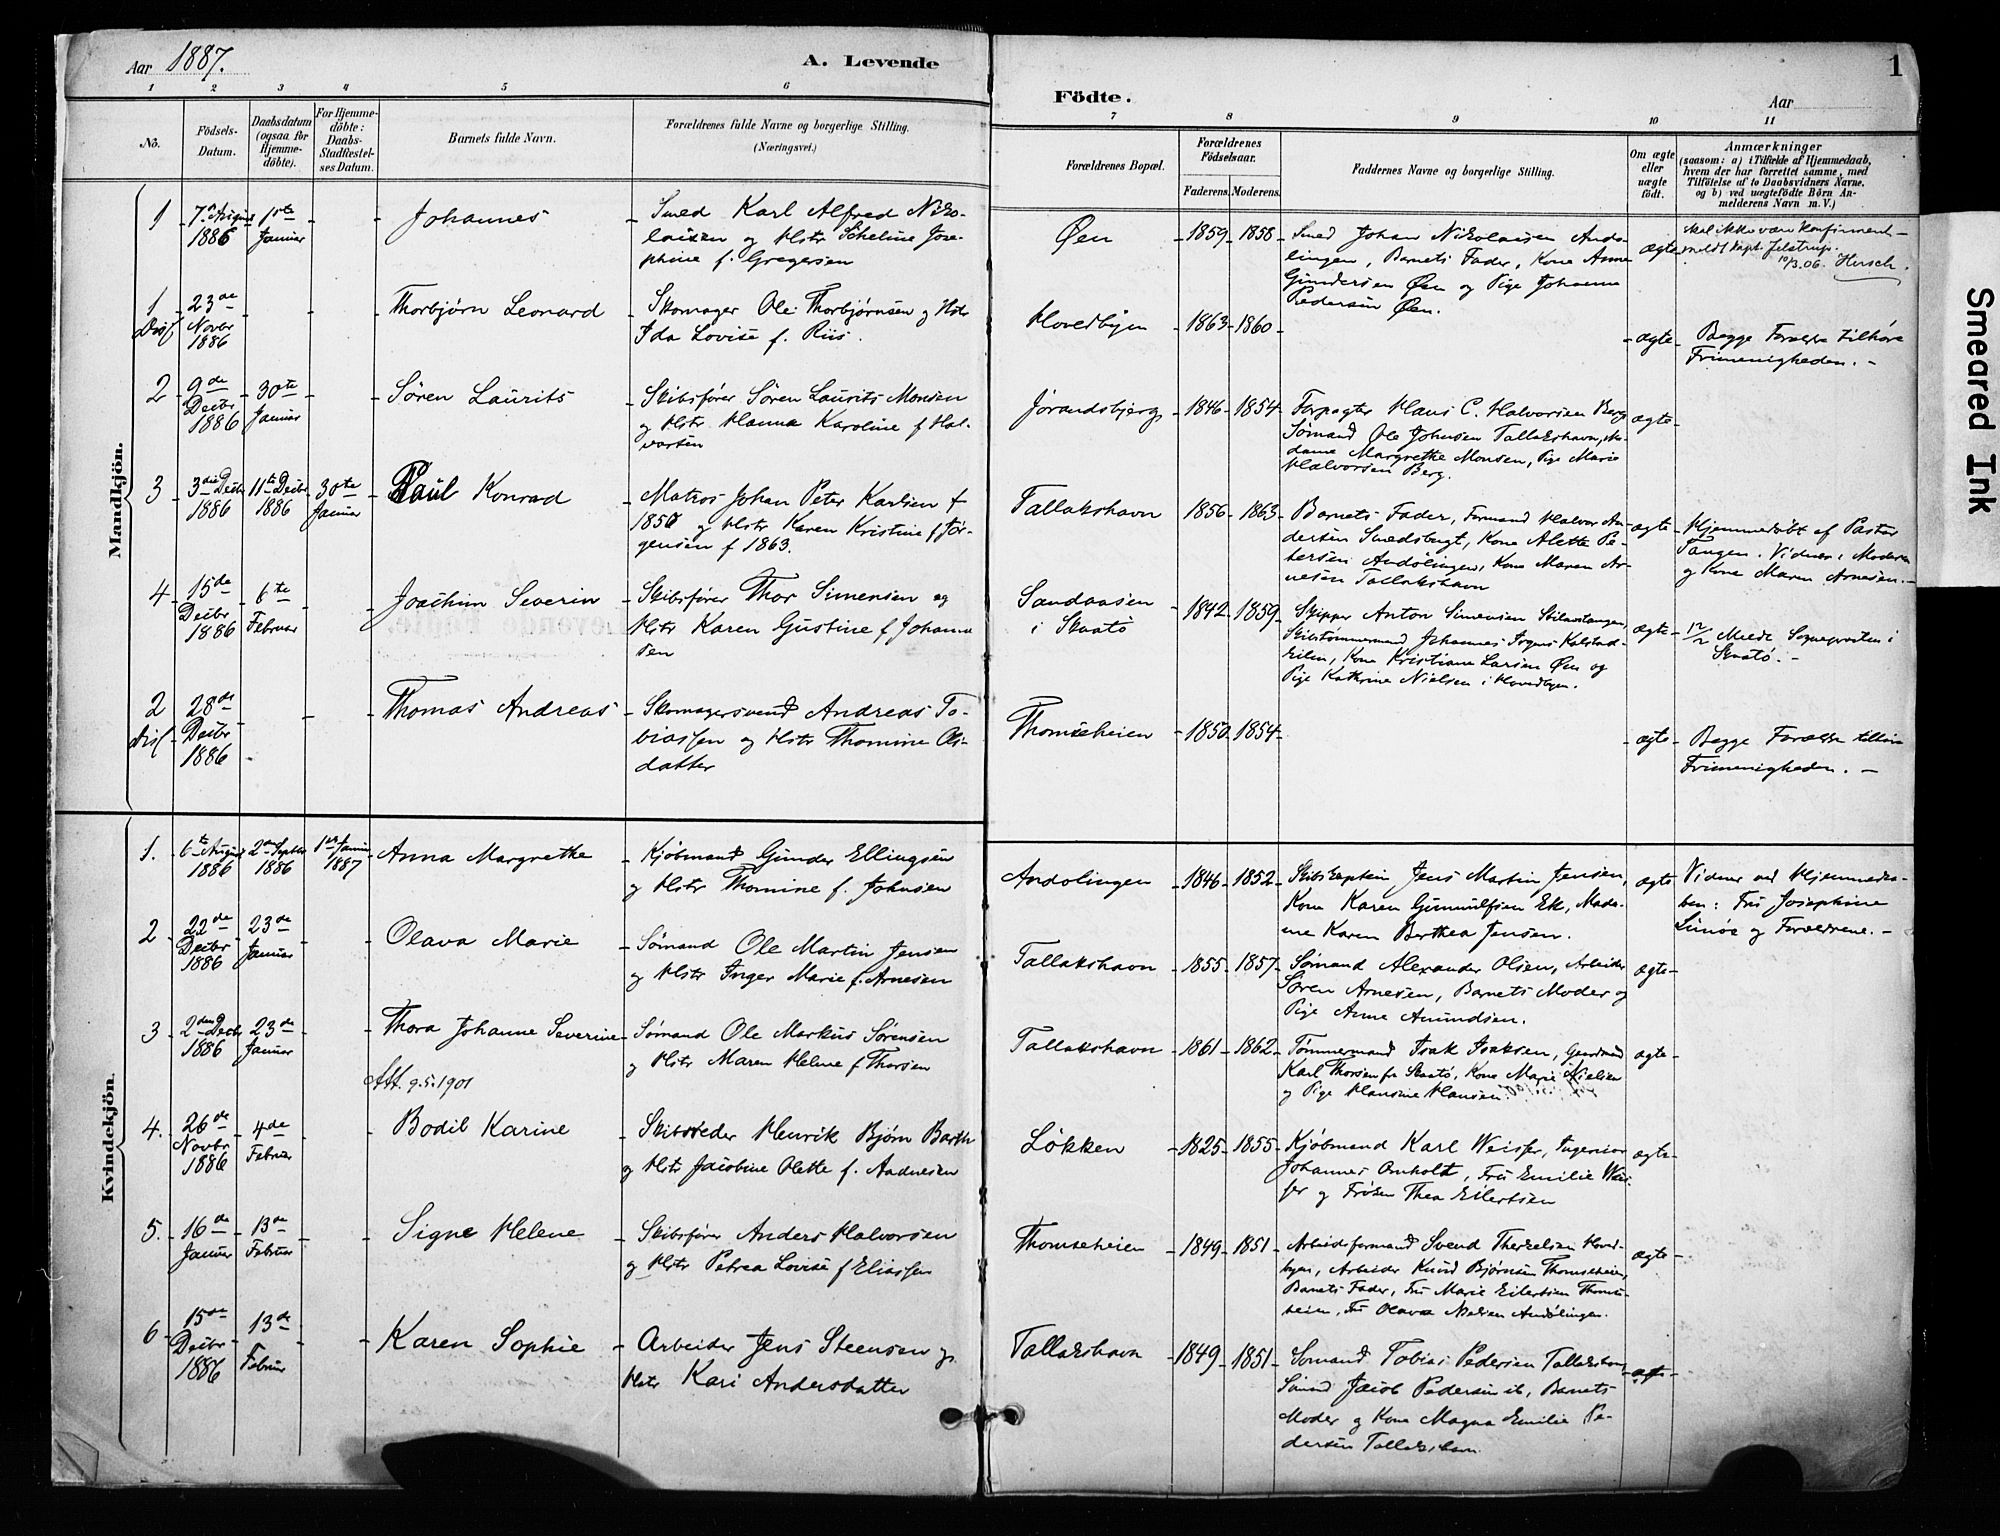 Aar 1887.
A. Levende
Födte.
Aar
1
1 2 3 4 5 6 7 8 9 10 11
No.
Födsels-
Datum.
Daabsdatum
(ogsaa for
Hjemme-
döbte).
For Hjemme-
döbte:
Daabs-
Stadfæstel-
ses Datum.
Barnets fulde Navn.
Forældrenes fulde Navne og borgerlige Stilling.
(Næringsvei.)
Forældrenes Bopæl.
Forældrenes
Födselsaar.
Faderens. Moderens.
Faddernes Navne og borgerlige Stilling.
Om ægte
eller
uægte
födt.
Anmærkninger
(saasom: a) i Tilfælde af Hjemmedaab,
hvem der har forrettet samme, med
Tilföielse af to Daabsvidners Navne,
og b) ved uægtefödte Börn An-
melderens Navn m. V.)
Mandkjön.
1
7de August
1886
1ste
Januar
Johannes
Smed Karl Alfred Niko-
laisen og Hstr Scheline Jose-
phine f. Gregersen
Øen
1859 1858
Smed Johan Nikolaisen Ando-
lingen, Barnets Fader, Kone Anne
Gundersen Øen og Pige Johanne
Pedersen Øen.
ægte
skal ikke være konfirmeret
meldt Kapt. Jelstrup.
10/3.06. Hirsch.
1
Diss
23de
Novbr
1886
Thorbjørn Leonard
Skomager Ole Thorbjørnsen og Hstr
Ida Lovise f. Riis.
Hovedbyen
1863 1860
ægte
Begge Forældre tilhøre
Frimenigheden. -
2
9de
Decbr
1886
30te
Januar
Sören Laurits
Skibsfører Sören Laurits Monsen
og Hstr Hanna Karoline f Hal-
vorsen
Jorandsbjerg
1846 1854
Forpagter Hans C. Halvorsen Berg
Sømand Ole Johnsen Tallakshavn, Ma-
dame Margrethe Monsen, Pige Marie
Halvorsen Berg.
ægte
3
3die Decbr
1886
11te Decbr
1886
30te
Januar
Paul Konrad
Matros Johan Peter Karlsen f
1856 og Hstr Karen Kristine f Jör-
gensen f 1863.
Tallakshavn
1856 1863
Barnets Fader, Formand Halvor An-
dersen Smedsbugt, Kone Alette Pe-
tersen Andölingen, Kone Maren Ar-
nesen Tallakshavn
ægte
Hjemmedøbt af Pastor
Tangen. Vidner: Moderen
og Kone Maren Arnesen. -
4
15de
Decbr
1886
6te
Februar
Joachim Severin
Skibsfører Thor Simensen og
Hstr Karen Gustine f Johanne
sen
Sandaasen
i Skaatö
1842 1859
Skipper Anton Simensen
Skibstømmermand Johannes
Kone Kristiane Larsen Øen og
Pige Kathrine Nielsen i Hovedbyen.
ægte
12/2 Medd. Sogneprœsten i
Skaatö. -
2
Diss
28de
Decbr
1886
Thomas Andreas
Skomagersvend Andreas To-
biassen og Hstr Thomine Ols-
datter
Thomseheien
1850 1854
ægte
Begge Forældre tilhøre
Frimenigheden. -
Kvindekjön.
1.
6te August
1886
2den Septbr
1886
1ste Januar
1887
Anna Margrethe
Kjöbmand Gunder Ellingsen
og Hstr Thomine f. Johnsen
Andölingen
1846 1852
Skibskaptein Jens Martin Jensen,
Kone Karen Gunnulfsen Ek, Mada-
me Karen Berthea Jensen.
ægte
Vidner ved Hjemmedaa-
ben: Fru Josephine
Lunøe og Forældrene. -
2
22de
Decbr
1886
23de
Januar
Olava Marie
Sømand Ole Martin Jensen
og Hstr Inger Marie f. Arnesen
Tallakshavn
1855 1857
Sømand Alexander Olsen, Arbeider
Søren Arnesen, Barnets Moder og
Pige Anne Amundsen.
ægte
3
2den Decbr
1886
23de
Januar
Thora Johanne Severine
Att. 9.5.1901
Sømand Ole Markus Sörensen
og Hstr Maren Helene f Thorsen
Tallakshavn
1861 1862
Tømmermand Isak Isaksen, Gaardmand
Karl Thorsen fr Skaatö, Kone Marie Nielsen
og Pige Hansine Hansen.
ægte
4.
26de
Novbr
1886
4de
Februar
Bodil Karine
Skibsreder Henrik Bjørn Barth
og Hstr Jacobine Olette f. Aadnesen
Lökken
1825 1855
Kjøbmand Karl Weisser, Ingeniør
Johannes Omholdt, Fru Emilie Weis-
ser og Frøken Thea Eilertsen
ægte
5.
16de
Januar
13de
Februar
Signe Helene
Skibsfører Anders Halvorsen
og Hstr Petrea Lovise f Eliassen
Thomseheien
1849 1851
Arbeidsformand Svend Therkelsen Hoved-
byen, Arbeider Knud Bjørnsen Thomseheien,
Barnets Fader, Fru Marie Eilertsen Thomse-
heien, Fru Olava Nielsen Andölingen.
ægte
6
15de
Decbr
1886
13de
Februar
Karen Sophie
Arbeider Jens Steensen og
Hstr Kari Andersdatter
Tallakshavn
1849 1851
Sømand Tobias Pedersen Tallakshavn,
Sömand Jacob Pedersen ib, Barnets
Moder og Kone Magna Emilie Pe-
dersen Tallakshavn.
ægte
Smeared Ink